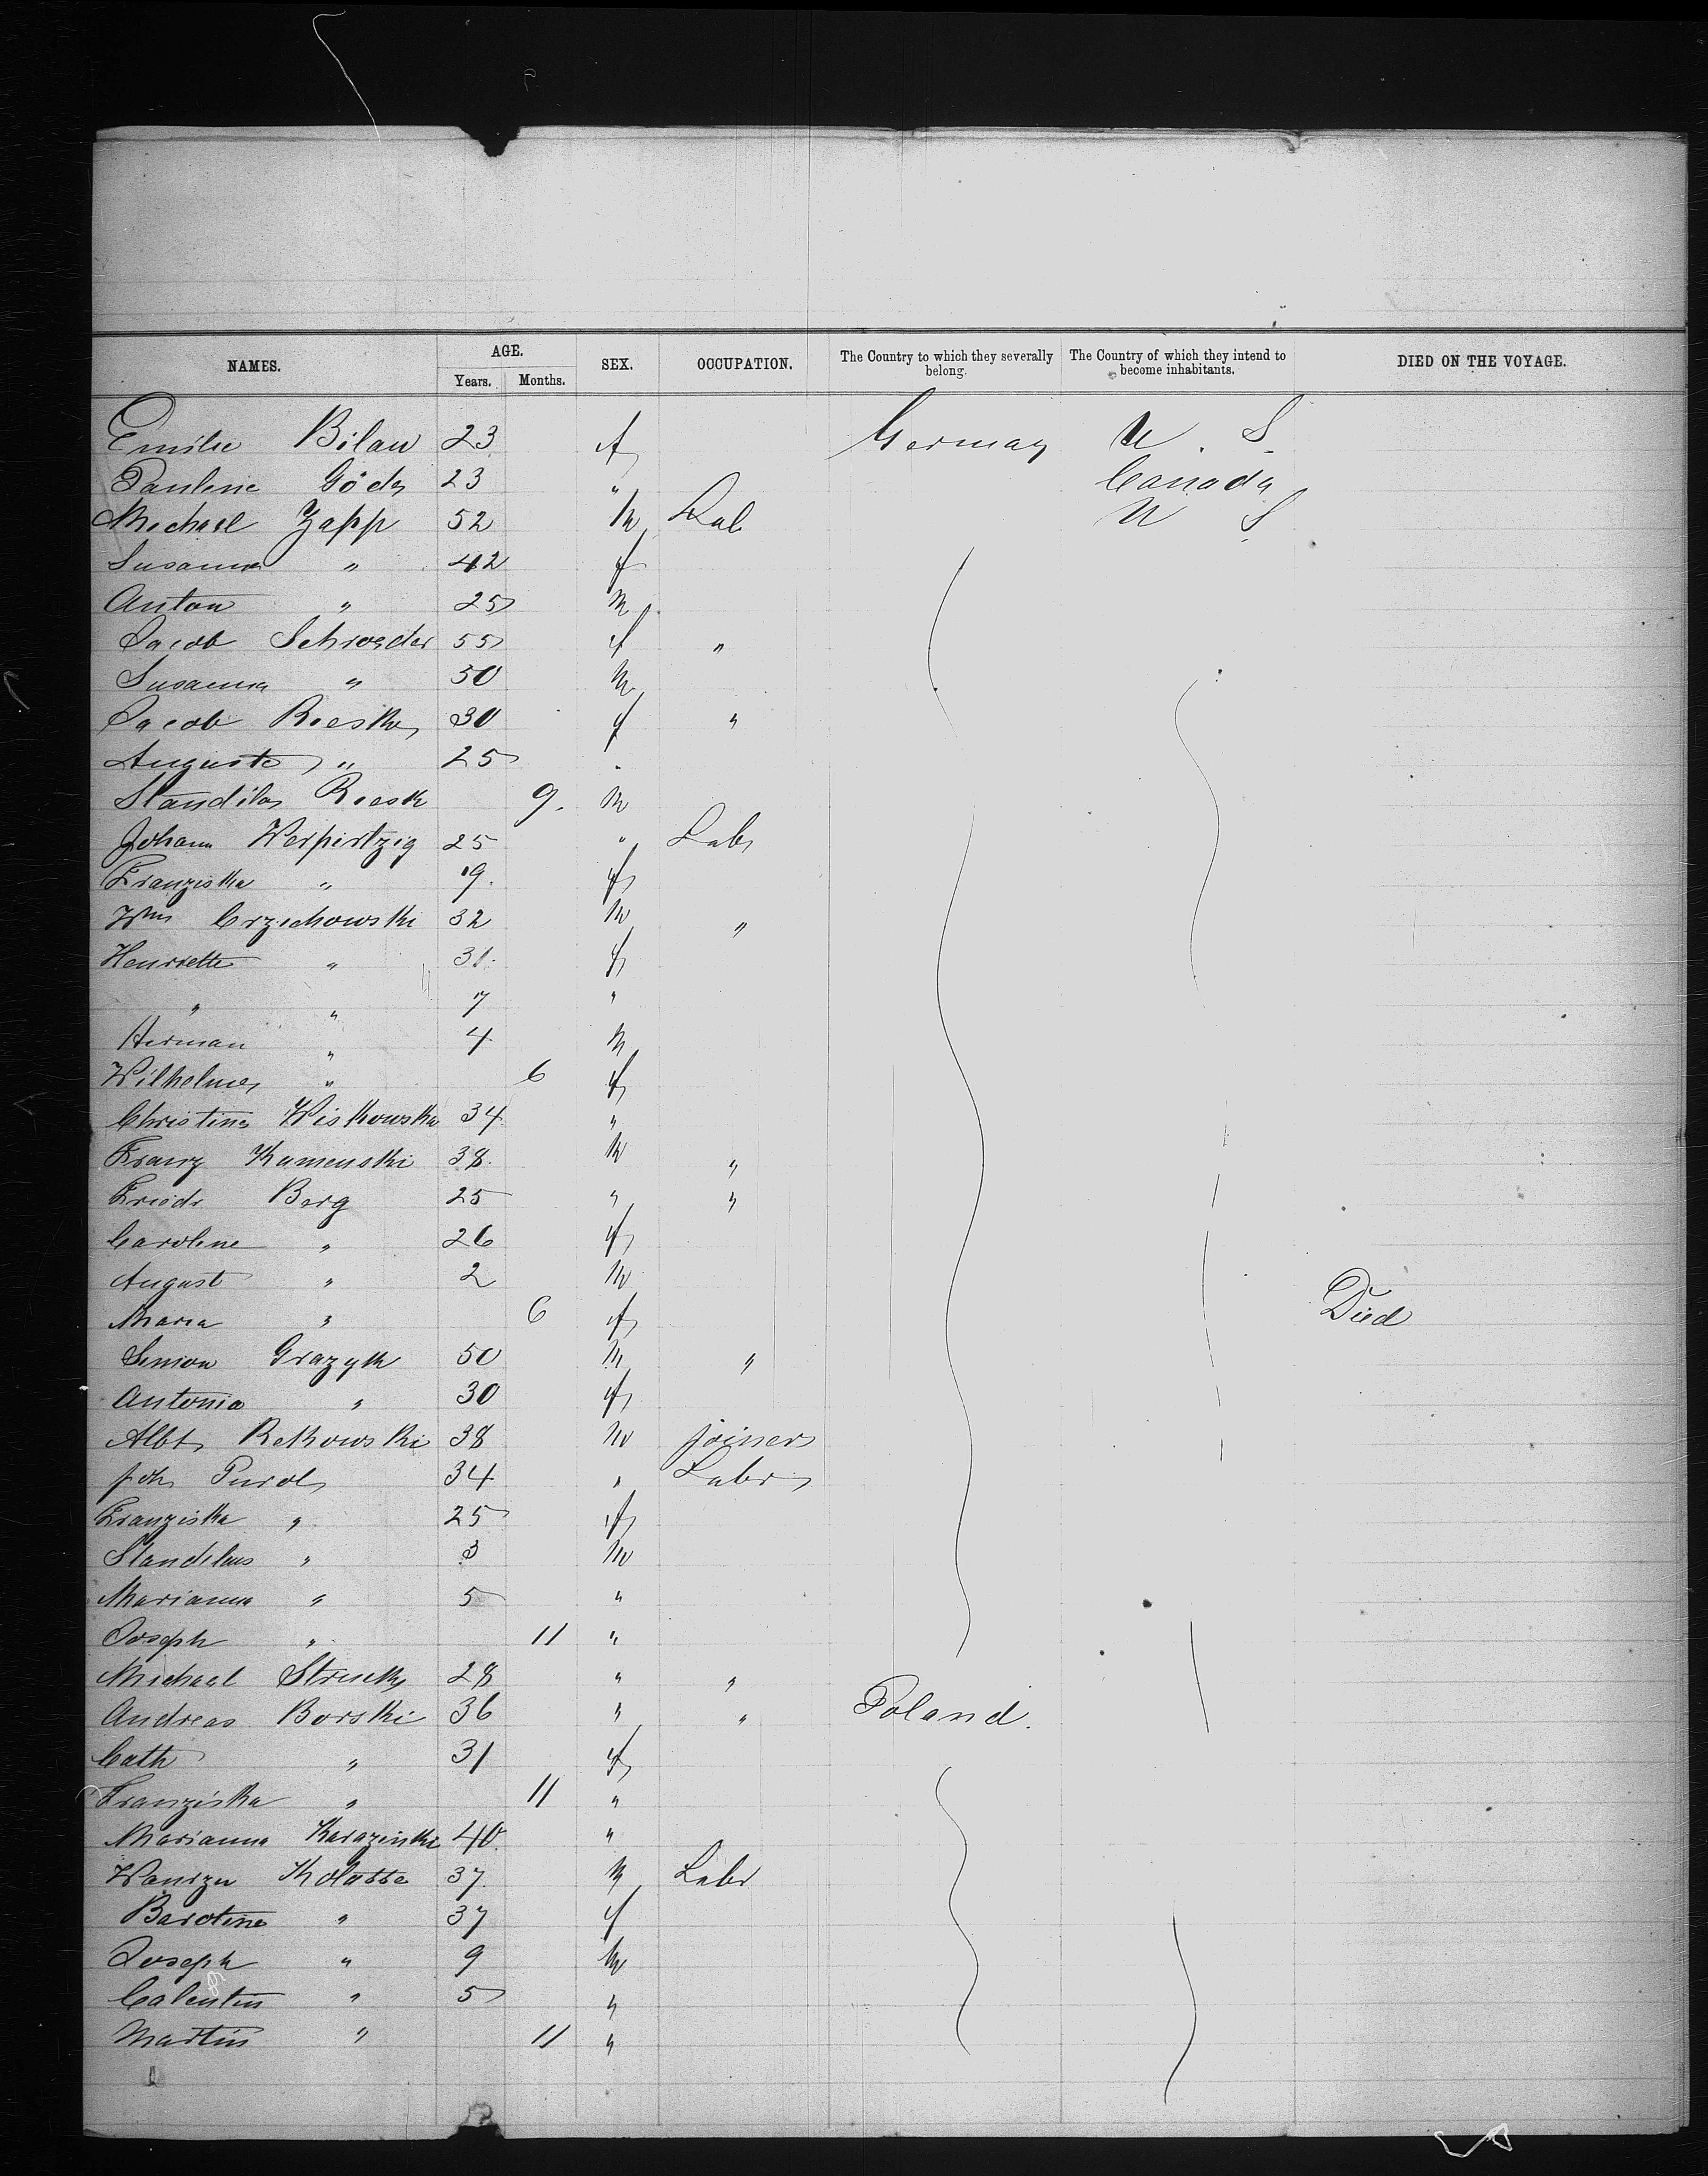 NAMES. AGE. SEX. OCCUPATION. The Country to which they severally belong. The Country of which they intend to become inhabitants. DIED ON THE VOYAGE.
Years. Months.
Emilie Bilau 23 f Germany U. S.
Pauline Göde 23 " Canada
Michael Zapp 52 m Lab U S
Susanna " 42 f
Anton " 25 m
Jacob Schroeder 55 f "
Susanna " 50 m
Jacob Roeske 30 f "
Auguste " 25 "
Standilos Roesk 9. m
Johann Werpirtzig 25 " Labr
Franziska " 19. f
Wm Crzichowski 32 m "
Henriette " 31. f
" " 7 "
Herman " 4 m
Wilhelme " 6 f
Christine Wiskowska 34 "
Franz Kamenski 38. m "
Friedr Berg 25 " "
Caroline " 26 f
August " 2 m
Maria " 6 f Died
Simon Grazyk 50 m "
Antonia " 30 f
Albt Rekowski 38 m joiner
Joh Purol 34 " Labr
Franziska " 25 f
Standilus " 3 m
Marianna " 5 "
Joseph " 11 "
Michael Strucky 28 " "
Andreas Borski 36 " " Poland.
Cath " 31 f
Franziska " 11 "
Marianna Karazinka 40. "
Wanrzu Kolatta 37 m Labr
Barotine " 37 f
Joseph " 9 m
Calentin " 5 "
Martin " 11 "